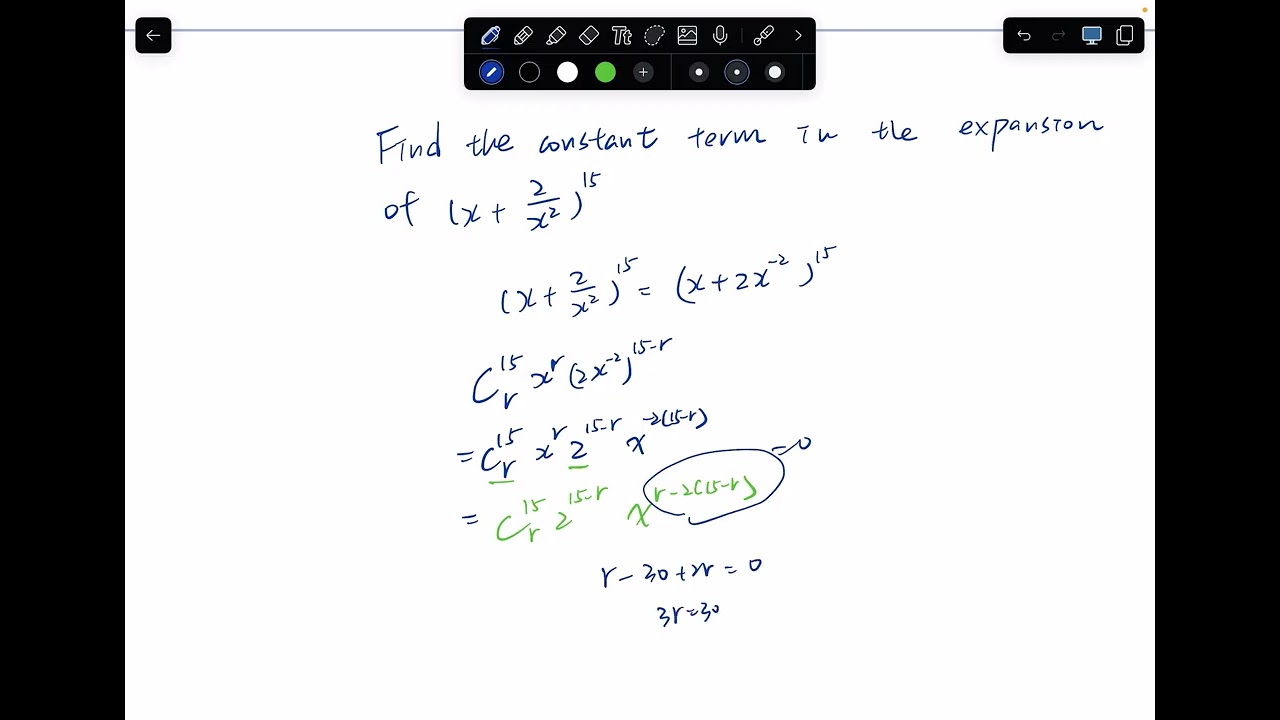 Tt
Find the constant term in the expansion
of (x + 2/x²)¹⁵
(x + 2/x²)¹⁵ = (x + 2x⁻²)¹⁵
C¹⁵ᵣ xʳ (2x⁻²)¹⁵⁻ʳ
= C¹⁵ᵣ xʳ 2¹⁵⁻ʳ x⁻²⁽¹⁵⁻ʳ⁾
= C¹⁵ᵣ 2¹⁵⁻ʳ xʳ⁻²⁽¹⁵⁻ʳ⁾ = 0
r - 30 + 2r = 0
3r = 30